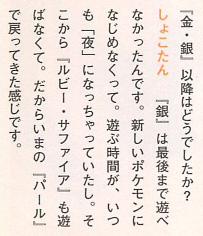 『金・銀』以降はどうでしたか？
しょこたん　『銀』は最後まで遊べ
なかったんです。新しいポケモンに
なじめなくって。遊ぶ時間が、いつ
も「夜」になっちゃっていたし。そ
こから『ルビー・サファイア』も遊
ばなくて。だからいまの『パール』
で戻ってきた感じです。